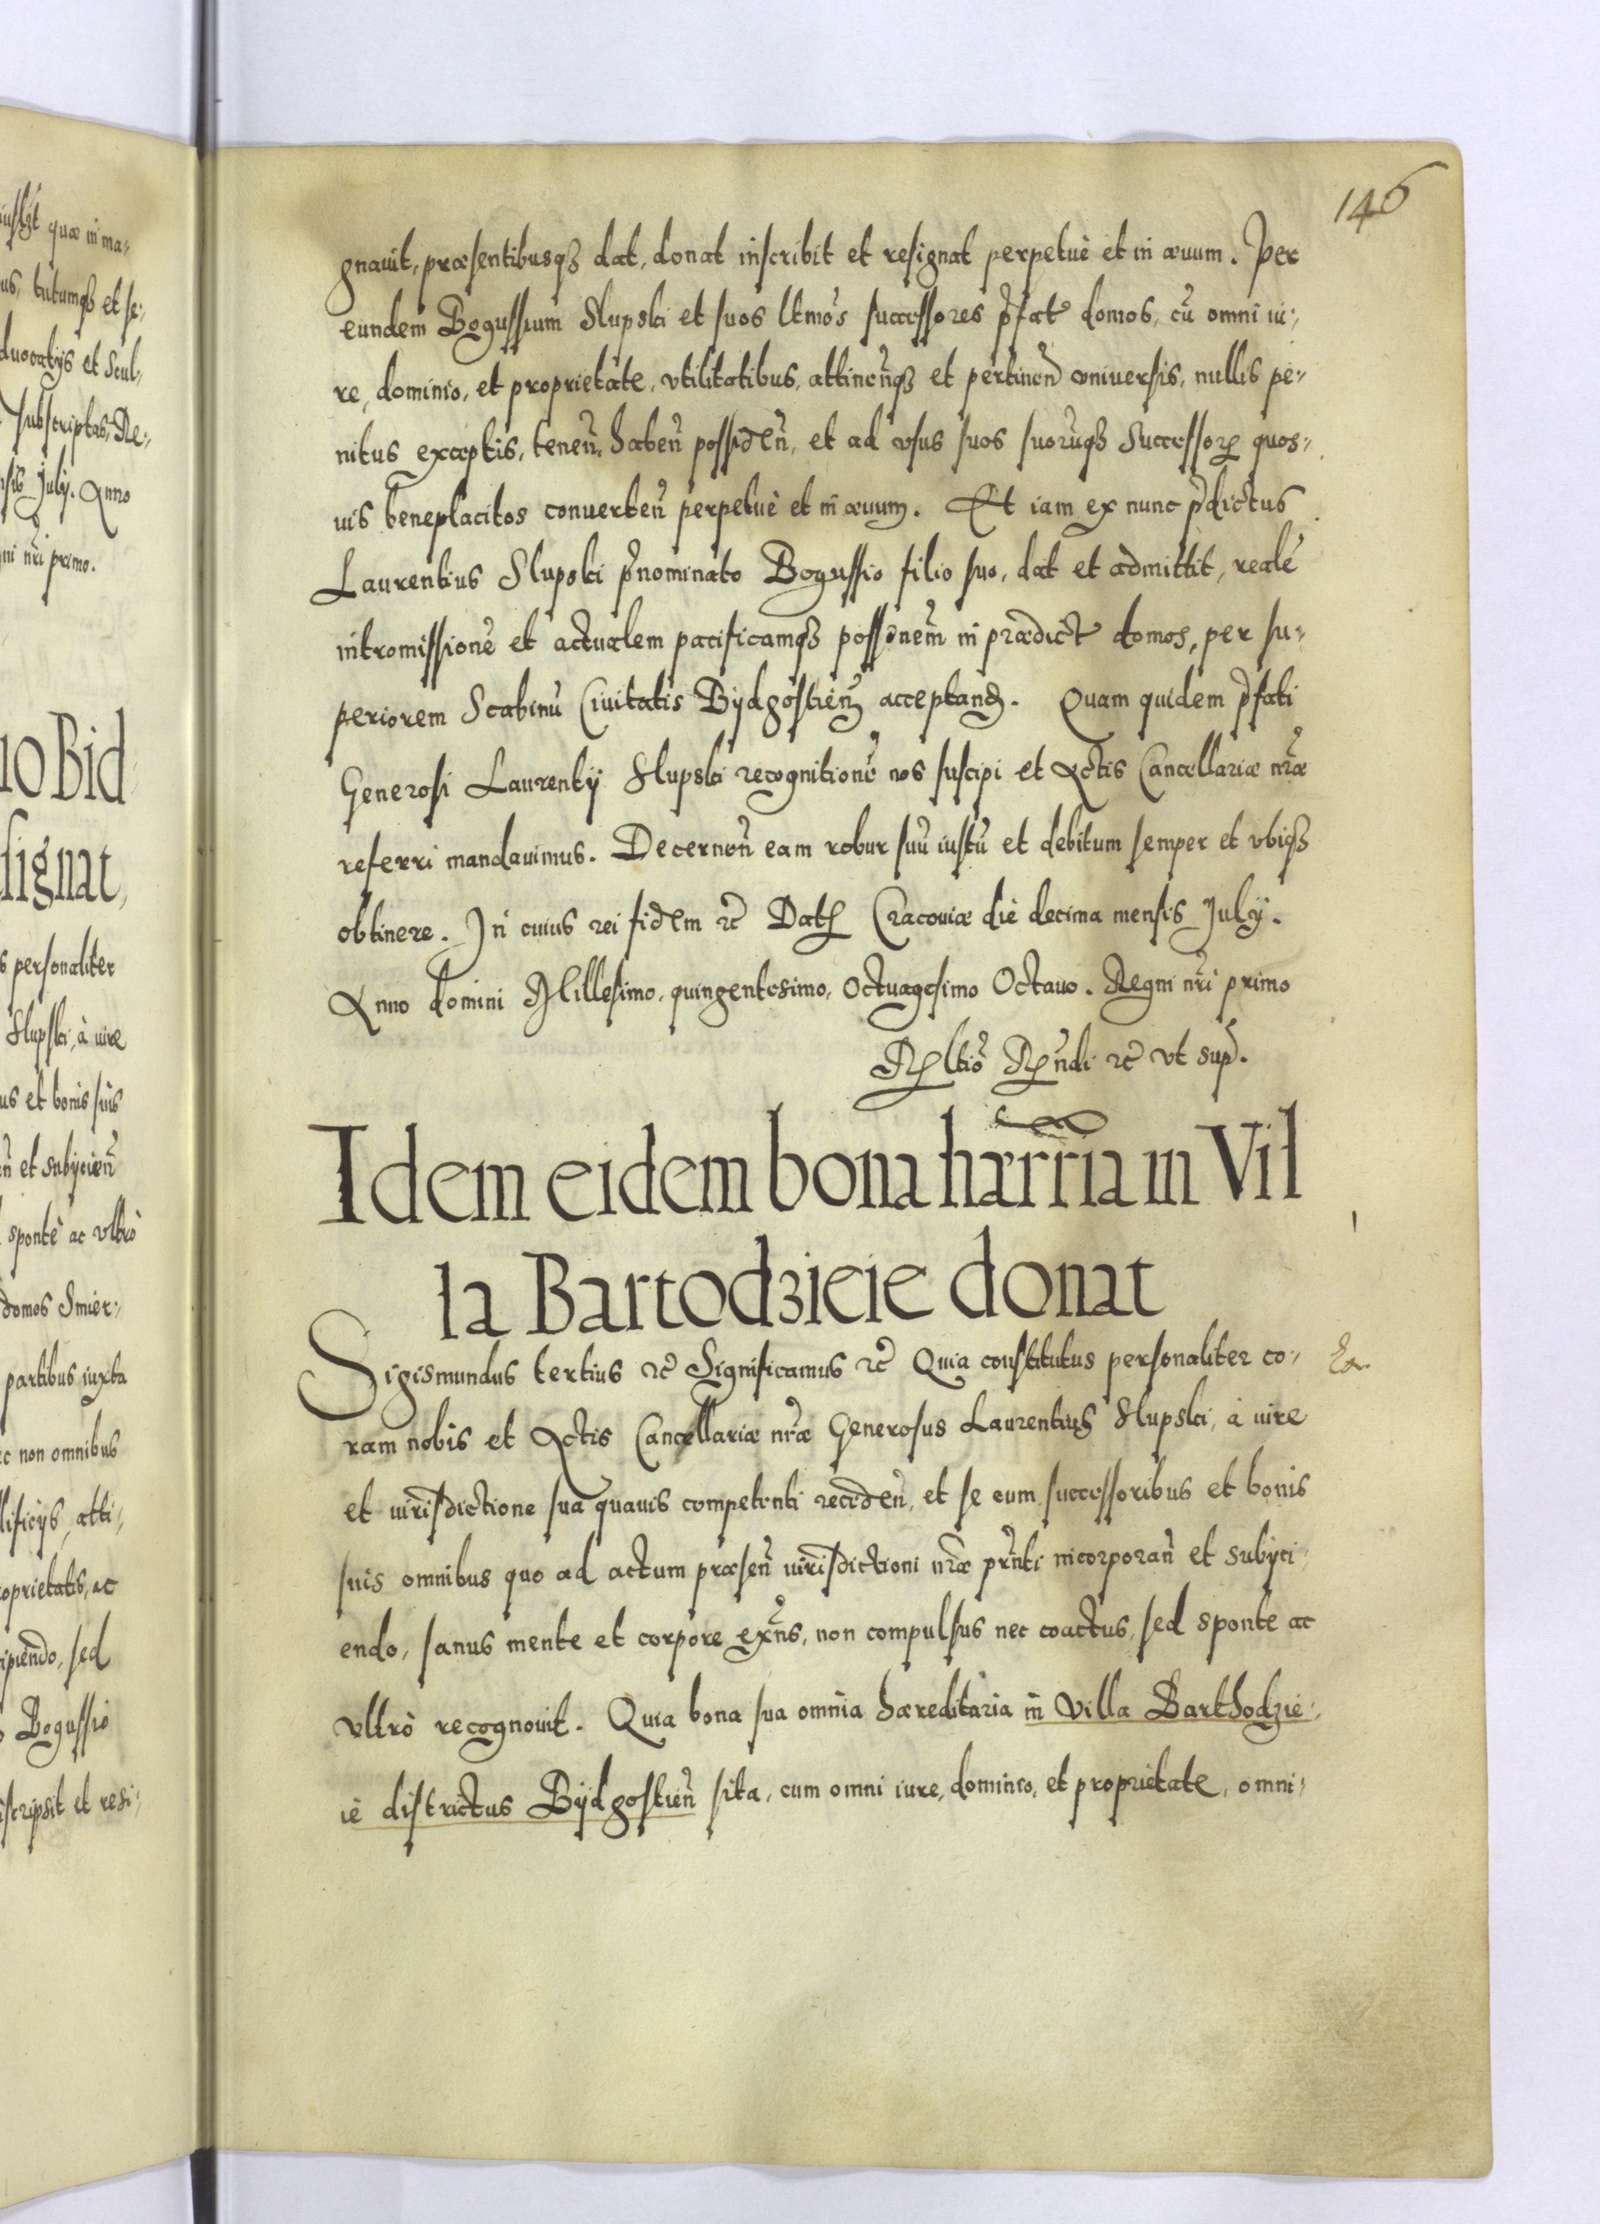 146
gnauit, præsentibusq₃ dat, donat inscribit et resignat perpetuè et in æuum. Per
eundem Bogussium Slupski et suos ltmōs successores p̄fat domos, cū omni iu-
re, dominio, et proprietate, vtilitatibus, attinen̄q₃ et pertinen̄ vniuersis, nullis pe-
nitus exceptis, tenen̄, haben̄ possiden̄, et ad vsus suos suorūq₃ Successoꝝ quos-
uis beneplacitos conuerten̄ perpetuè et in æuum. Et iam ex nunc p̄dictus
Laurentius Slupski p̄nominato Bogussio filio suo, dat et admittit, realē
intromissionē et actualem pacificamq₃ poss̄onem in prædict domos, per su-
periorem Scabinū Ciuitatis Bydgostien̄ acceptand. Quam quidem p̄fati
Generosi Laurentij Slupski recognitionē nos suscipi et Actis Cancellariæ nr̄æ
referri mandauimus. Decernen̄ eam robur suū iustū et debitum semper et vbiq₃
obtinere. In cuius rei fidem &c̄ Dat Cracouiæ die decima mensis July.
Anno domini Millesimo, quingentesimo, Octuagesimo Octauo. Regni nr̄i primo
R ltiō R ndi &c̄ vt sup̄.
Idem eidem bona hær̄ria in Vil
la Bartodzieie donat
Sigismundus tertius &c̄ Significamus &c̄ Quia constitutus personaliter co-
ram nobis et Actis Cancellariæ nr̄æ Generosus Laurentius Slupski, à iure
et iurisdictione sua quauis competenti receden̄, et se cum successoribus et bonis
suis omnibus quo ad actum præsen̄ iurisdictioni nr̄æ pr̄nti incorporan̄ et subyci-
endo, sanus mente et corpore exn̄s, non compulsus nec coactus, sed sponte ac
vltrò recognouit. Quia bona sua omnia hæreditaria in Villa Barthodzie-
ie districtus Bydgostien̄ sita, cum omni iure, dominio, et proprietate, omni-